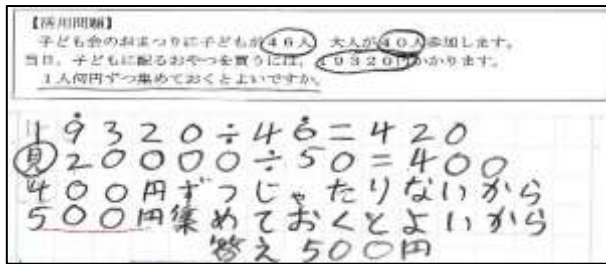 【活用問題】
子ども会のおまつりに子どもが46人 大人が40人参加します。
当日、子どもに配るおやつを買うには、19320円かかります。
1人何円ずつ集めておくとよいですか。
19320÷46=420
見20000÷50=400
400円ずつじゃたりないから
500円集めておくとよいから
答え500円